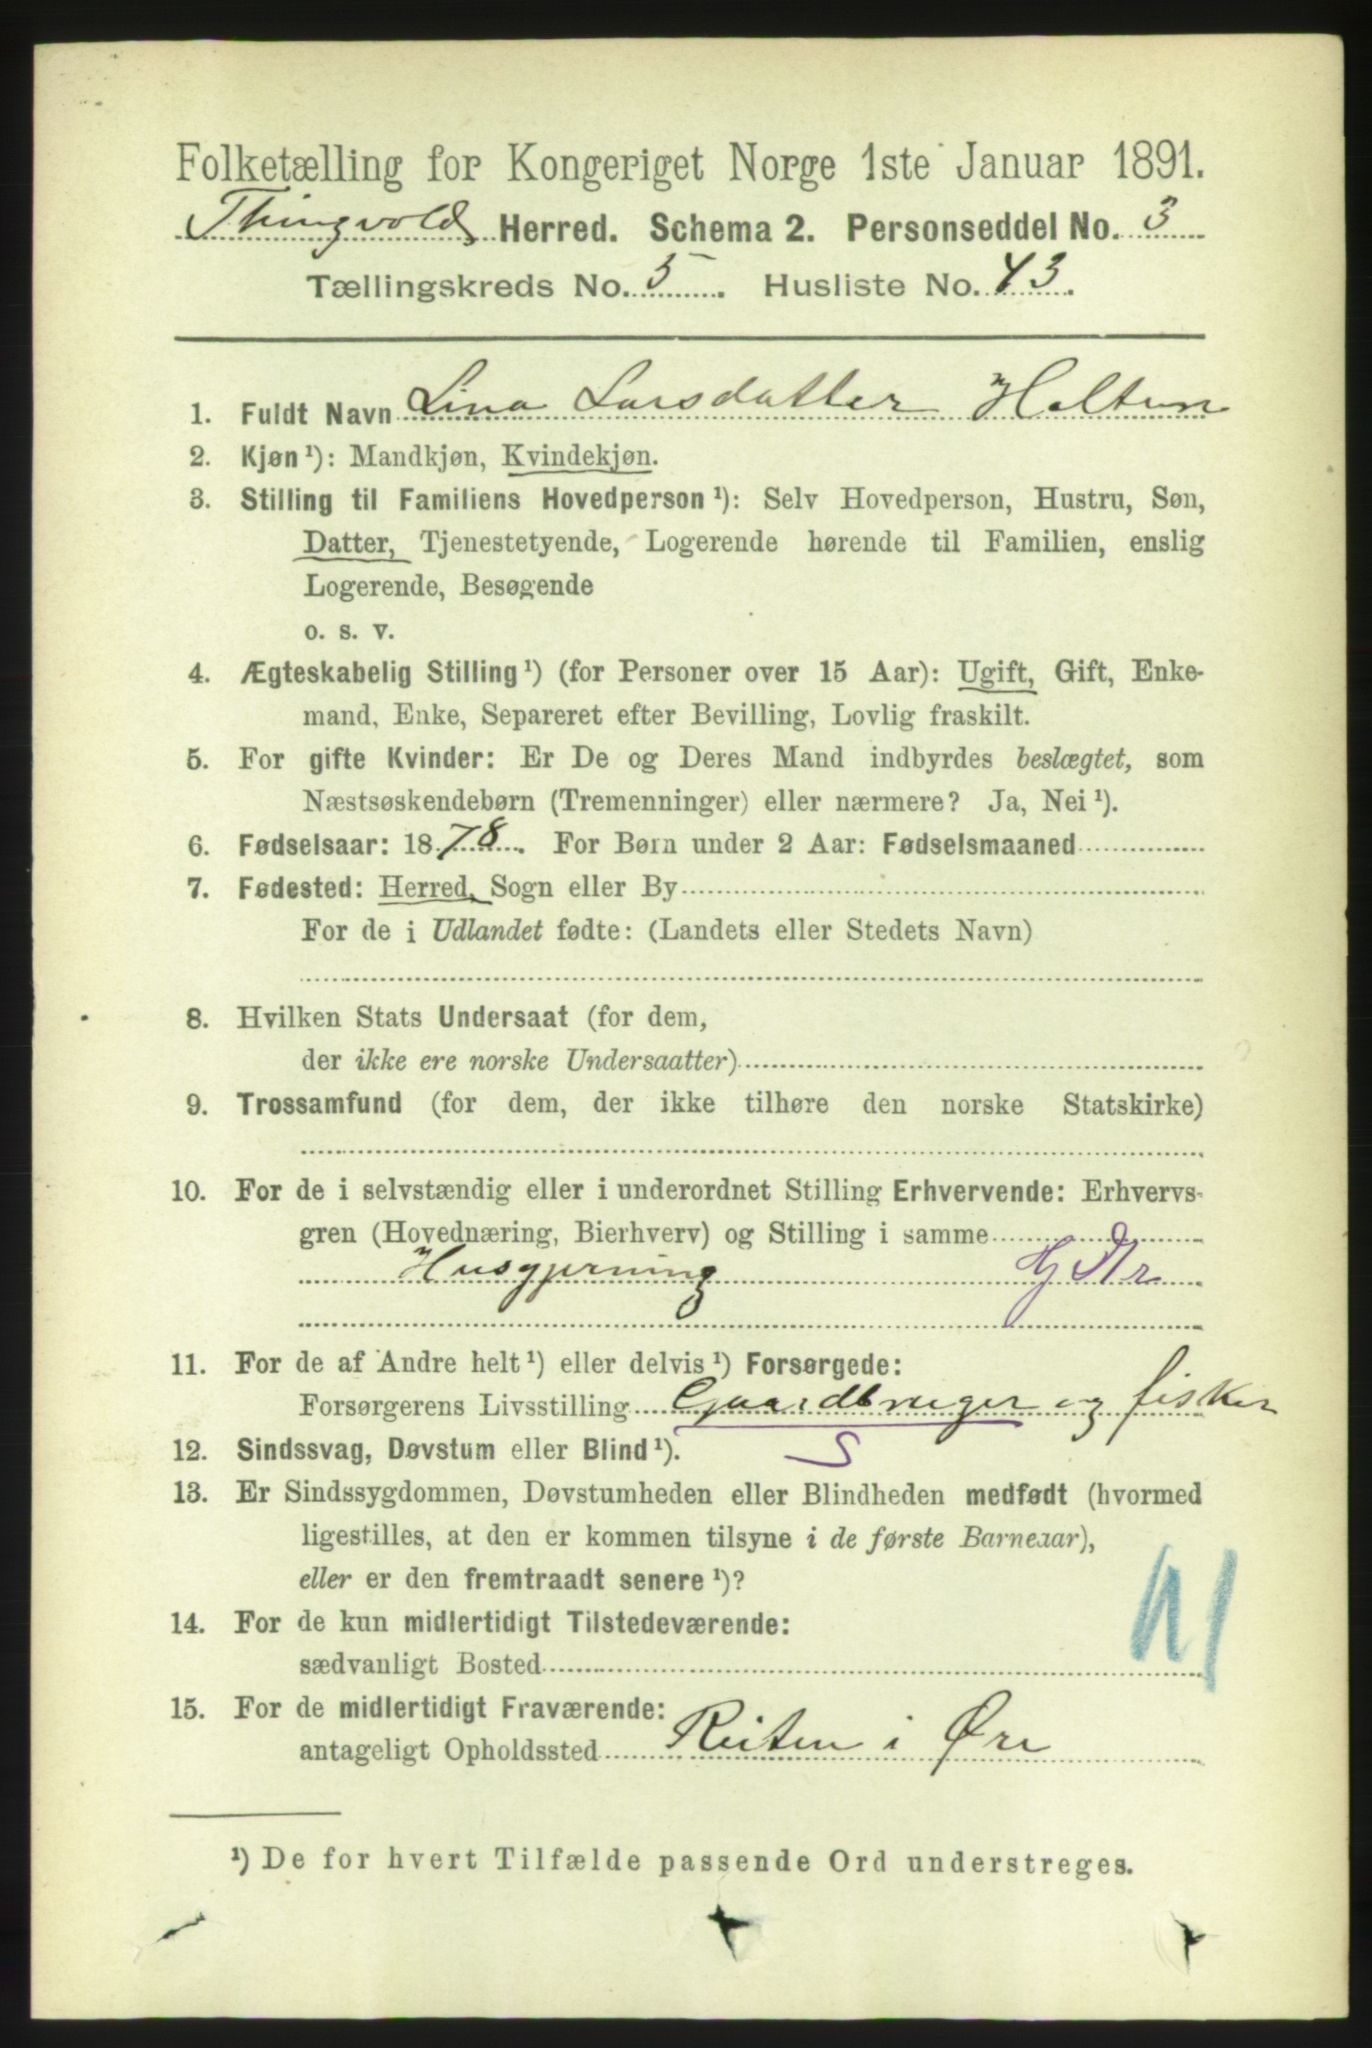 Folketælling for Kongeriget Norge 1ste Januar 1891.
Thingvold Herred. Schema 2. Personseddel No. 3
Tællingskreds No. 5. Husliste No. 43.
1. Fuldt Navn Lina Larsdatter Holten
2. Kjøn ¹): Mandkjøn, Kvindekjøn.
3. Stilling til Familiens Hovedperson ¹): Selv Hovedperson, Hustru, Søn,
Datter, Tjenestetyende, Logerende hørende til Familien, enslig
Logerende, Besøgende
o. s. v.
4. Ægteskabelig Stilling ¹) (for Personer over 15 Aar): Ugift, Gift, Enke-
mand, Enke, Separeret efter Bevilling, Lovlig fraskilt.
5. For gifte Kvinder: Er De og Deres Mand indbyrdes beslægtet, som
Næstsøskendebørn (Tremenninger) eller nærmere? Ja, Nei ¹).
6. Fødselsaar: 1878. For Børn under 2 Aar: Fødselsmaaned
7. Fødested: Herred, Sogn eller By
For de i Udlandet fødte: (Landets eller Stedets Navn)
8. Hvilken Stats Undersaat (for dem,
der ikke ere norske Undersaatter)
9. Trossamfund (for dem, der ikke tilhøre den norske Statskirke)
10. For de i selvstændig eller i underordnet Stilling Erhvervende: Erhvervs-
gren (Hovednæring, Bierhverv) og Stilling i samme
Husgjerning
11. For de af Andre helt ¹) eller delvis ¹) Forsørgede:
Forsørgerens Livsstilling Gaardbruger og fisker
12. Sindssvag, Døvstum eller Blind ¹). S
13. Er Sindssygdommen, Døvstumheden eller Blindheden medfødt (hvormed
ligestilles, at den er kommen tilsyne i de første Barneaar),
eller er den fremtraadt senere ¹)?
14. For de kun midlertidigt Tilstedeværende:
sædvanligt Bosted
15. For de midlertidigt Fraværende:
antageligt Opholdssted Reiten i Øre
¹) De for hvert Tilfælde passende Ord understreges.